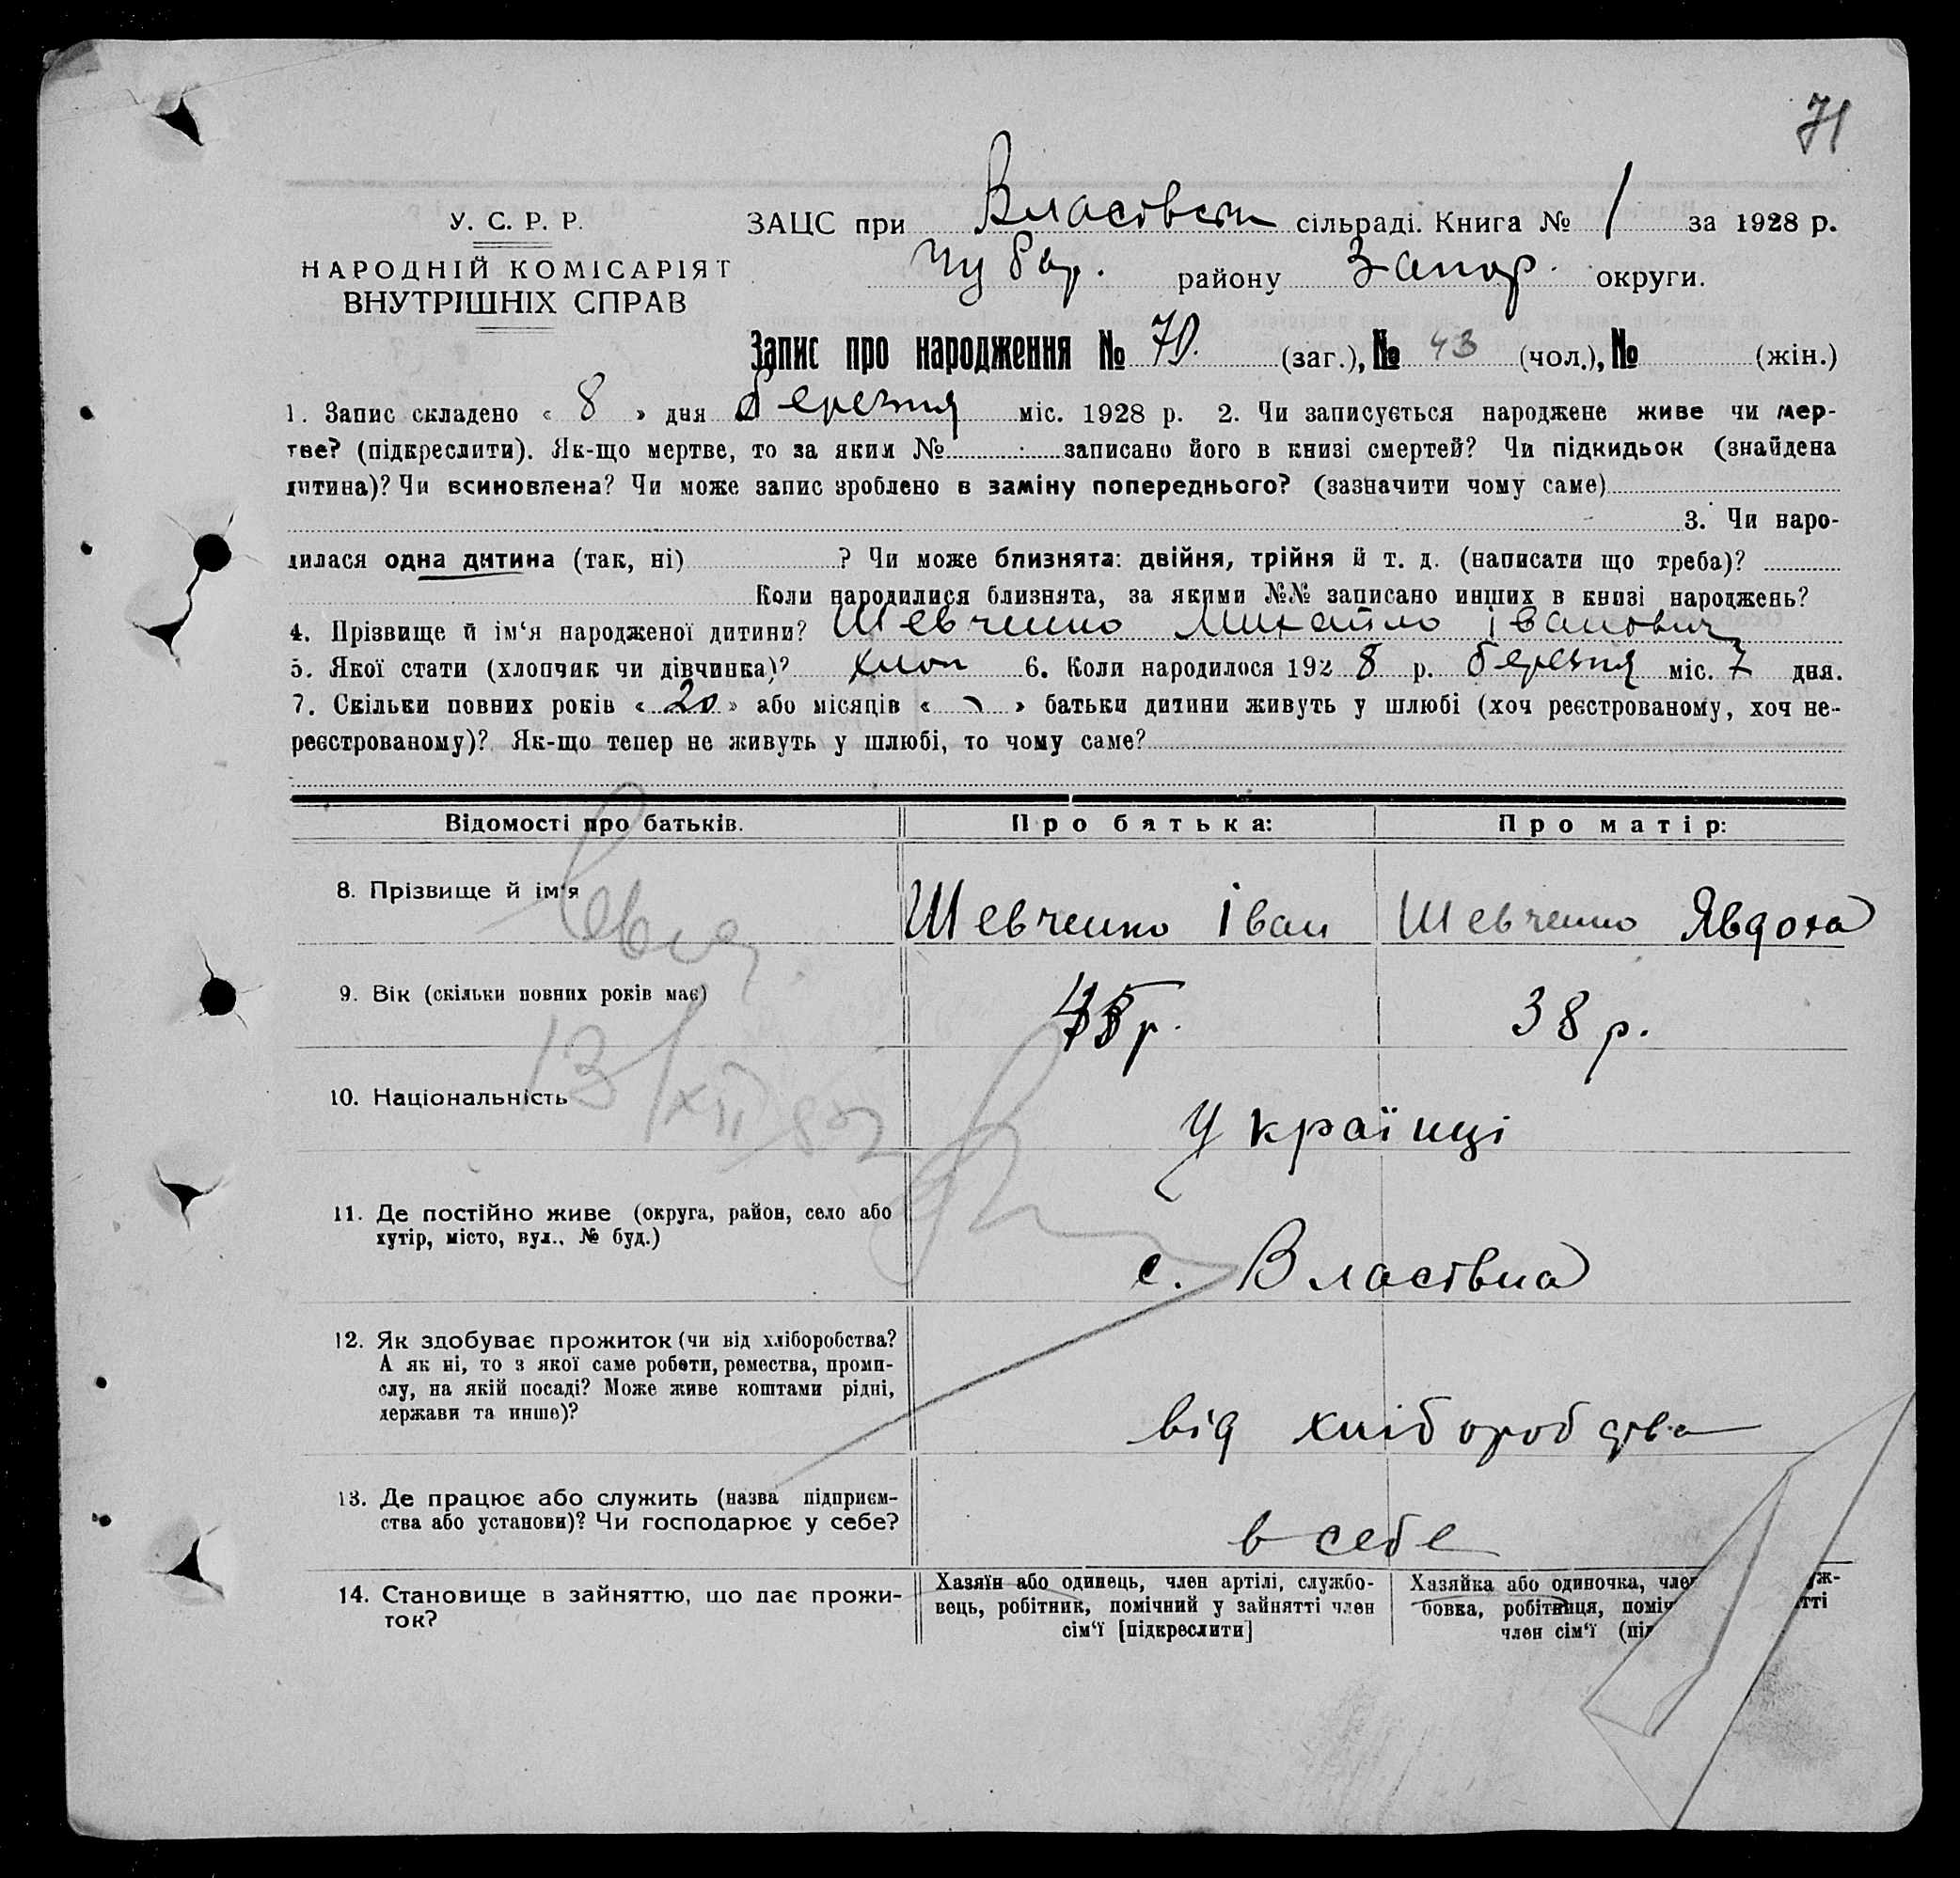 71
У. С. Р. Р.
НАРОДНІЙ КОМІСАРІЯТ
ВНУТРІШНІХ СПРАВ
ЗАЦС при Властвськ сільраді. Книга № 1 за 1928 р.
Чубар. району Запор. округи.
Запис про народження № 70. (заг.), № 43 (чол.), № (жін.)
1. Запис складено « 8 » дня березня міс. 1928 р. 2. Чи записується народжене живе чи мер-
тве? (підкреслити). Як-що мертве, то за яким № записано його в книзі смертей? Чи підкидьок (знайдена
дитина)? Чи всиновлена? Чи може запис зроблено в заміну попереднього? (зазначити чому саме)
3. Чи наро-
дилася одна дитина (так, ні) ? Чи може близнята: двійня, трійня й т. д. (написати що треба)?
Коли народилися близнята, за якими №№ записано инших в книзі народжень?
4. Прізвище й ім‘я народженої дитини? Шевченко Михайло Іванович
5. Якої стати (хлопчик чи дівчинка)? хлоп 6. Коли народилося 1928 р. березня міс. 7 дня.
7. Скільки повних років « 20 » або місяців « » батьки дитини живуть у шлюбі (хоч реєстрованому, хоч не-
реєстрованому)? Як-що тепер не живуть у шлюбі, то чому саме?
Відомості про батьків. Про батька: Про матір:
8. Прізвище й ім‘я Шевченко Іван Шевченко Явдоха
9. Вік (скільки повних років має) р. 38 р.
13/XII
10. Національність Українці
11. Де постійно живе (округа, район, село або
хутір, місто, вул., № буд.)
с. Властвка
12. Як здобуває прожиток (чи від хліборобства?
А як ні, то з якої саме роботи, ремества, проми-
слу, на якій посаді? Може живе коштами рідні,
держави та инше)?
від хліборобства
13. Де працює або служить (назва підприєм-
ства або установи)? Чи господарює у себе?
в себе
14. Становище в зайняттю, що дає прожи-
ток?
Хазяїн або одинець, член артілі, службо-
вець, робітник, помічний у зайнятті член
сім‘ї [підкреслити]
Хазяйка або одиночка,
бовка, робітниця,
член сім‘ї